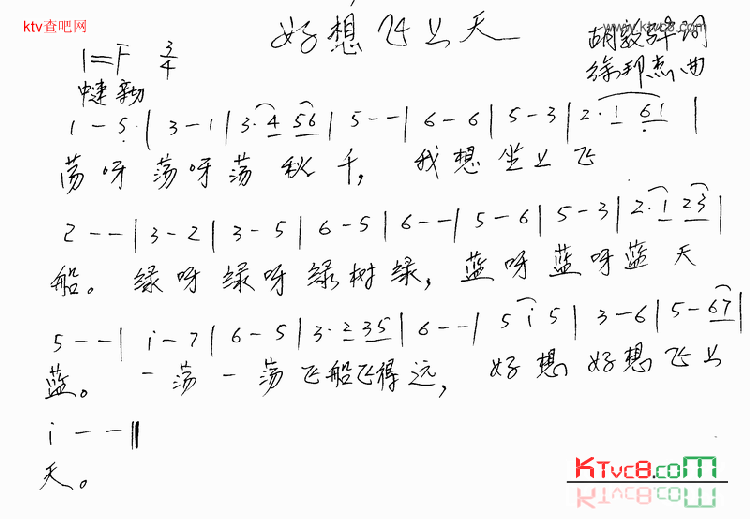 ktv查吧网
www.ktvc8.com
好想飞上天
1=F 3/4
胡敦骅词
徐邦杰曲
中速
1 - 5 | 3 - 1 | 3 · 4 5 6 | 5 - - | 6 - 6 | 5 - 3 | 2 · 1 6 1 |
荡呀荡呀荡秋千，我想坐上飞
2 - - | 3 - 2 | 3 - 5 | 6 - 5 | 6 - - | 5 - 6 | 5 - 3 | 2 · 1 2 3 |
船。绿呀绿呀绿树绿，蓝呀蓝呀蓝天
5 - - | i - 7 | 6 - 5 | 3 · 2 3 5 | 6 - - | 5 i 5 | 3 - 6 | 5 - 6 7 |
蓝。一荡一荡飞船飞得远，好想好想飞上
i - - ‖
天。
KTVC8.com